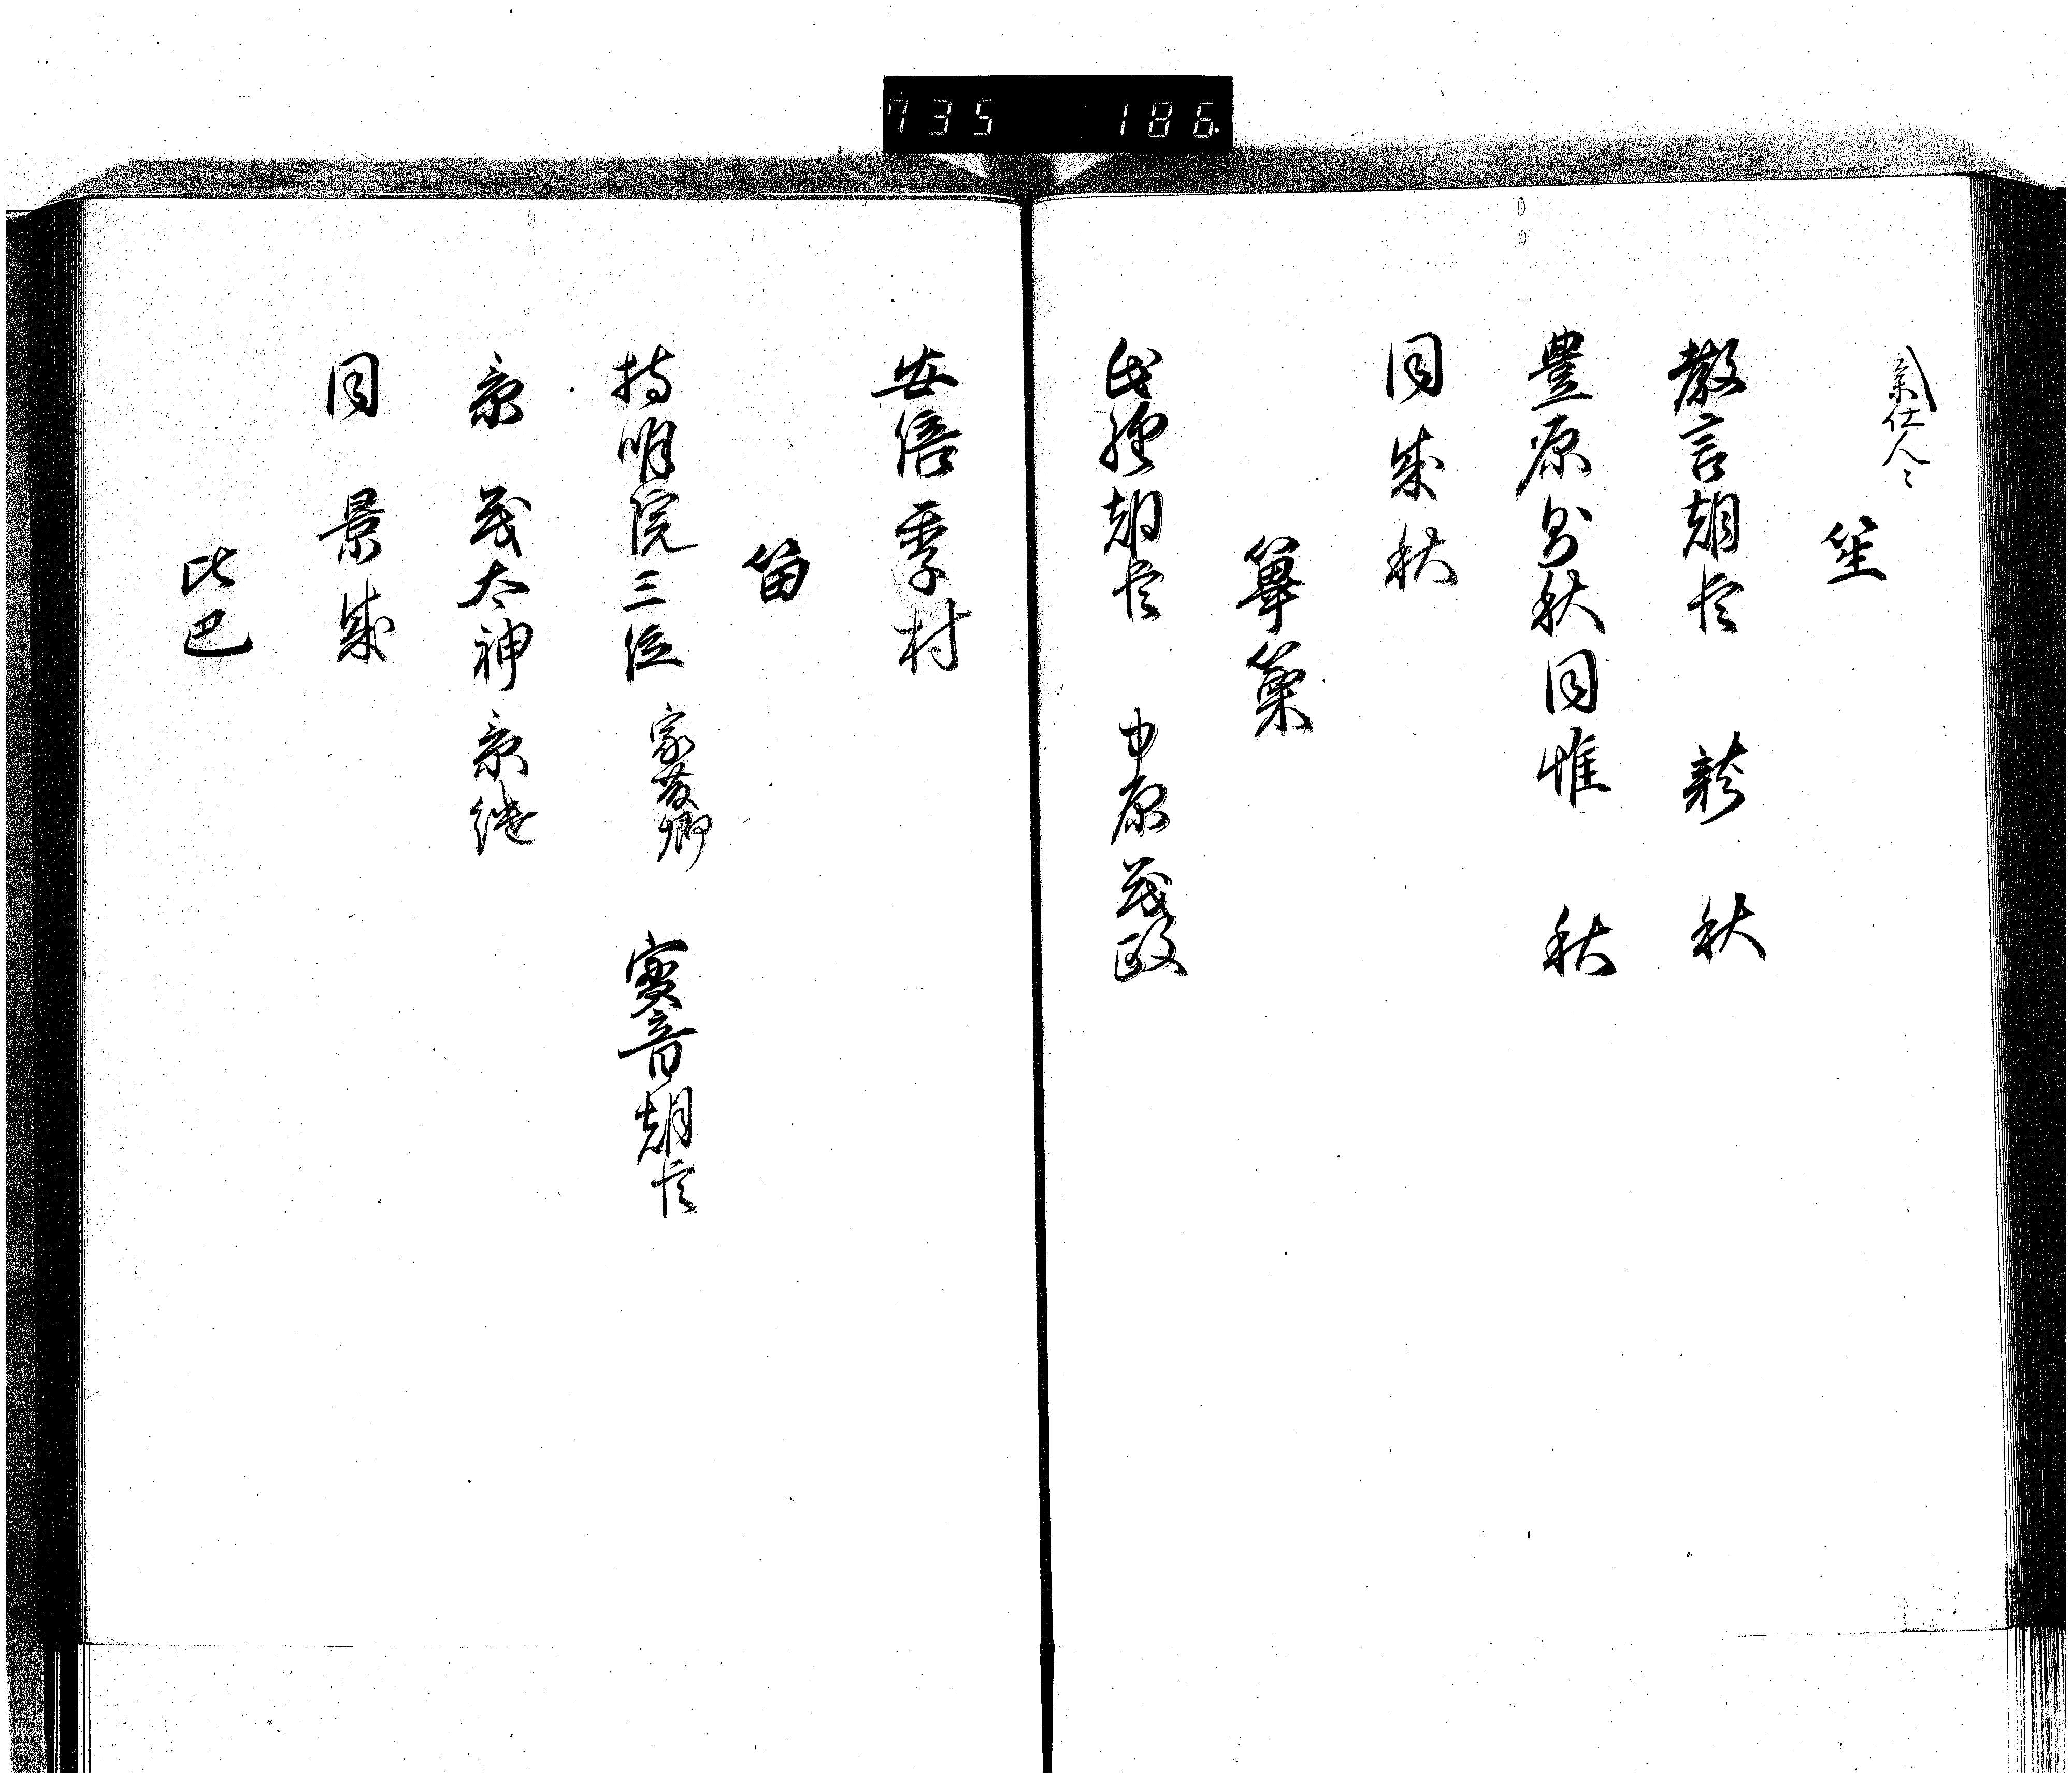 735 186
参仕人々
笙
教言朝臣 龍秋
豊原 秋同惟 秋
同成秋
篳篥
氏 朝臣 中原茂政
安倍季村
笛
持明院三位 家 卿 実音朝臣
景茂 太神景継
同景成
比巴